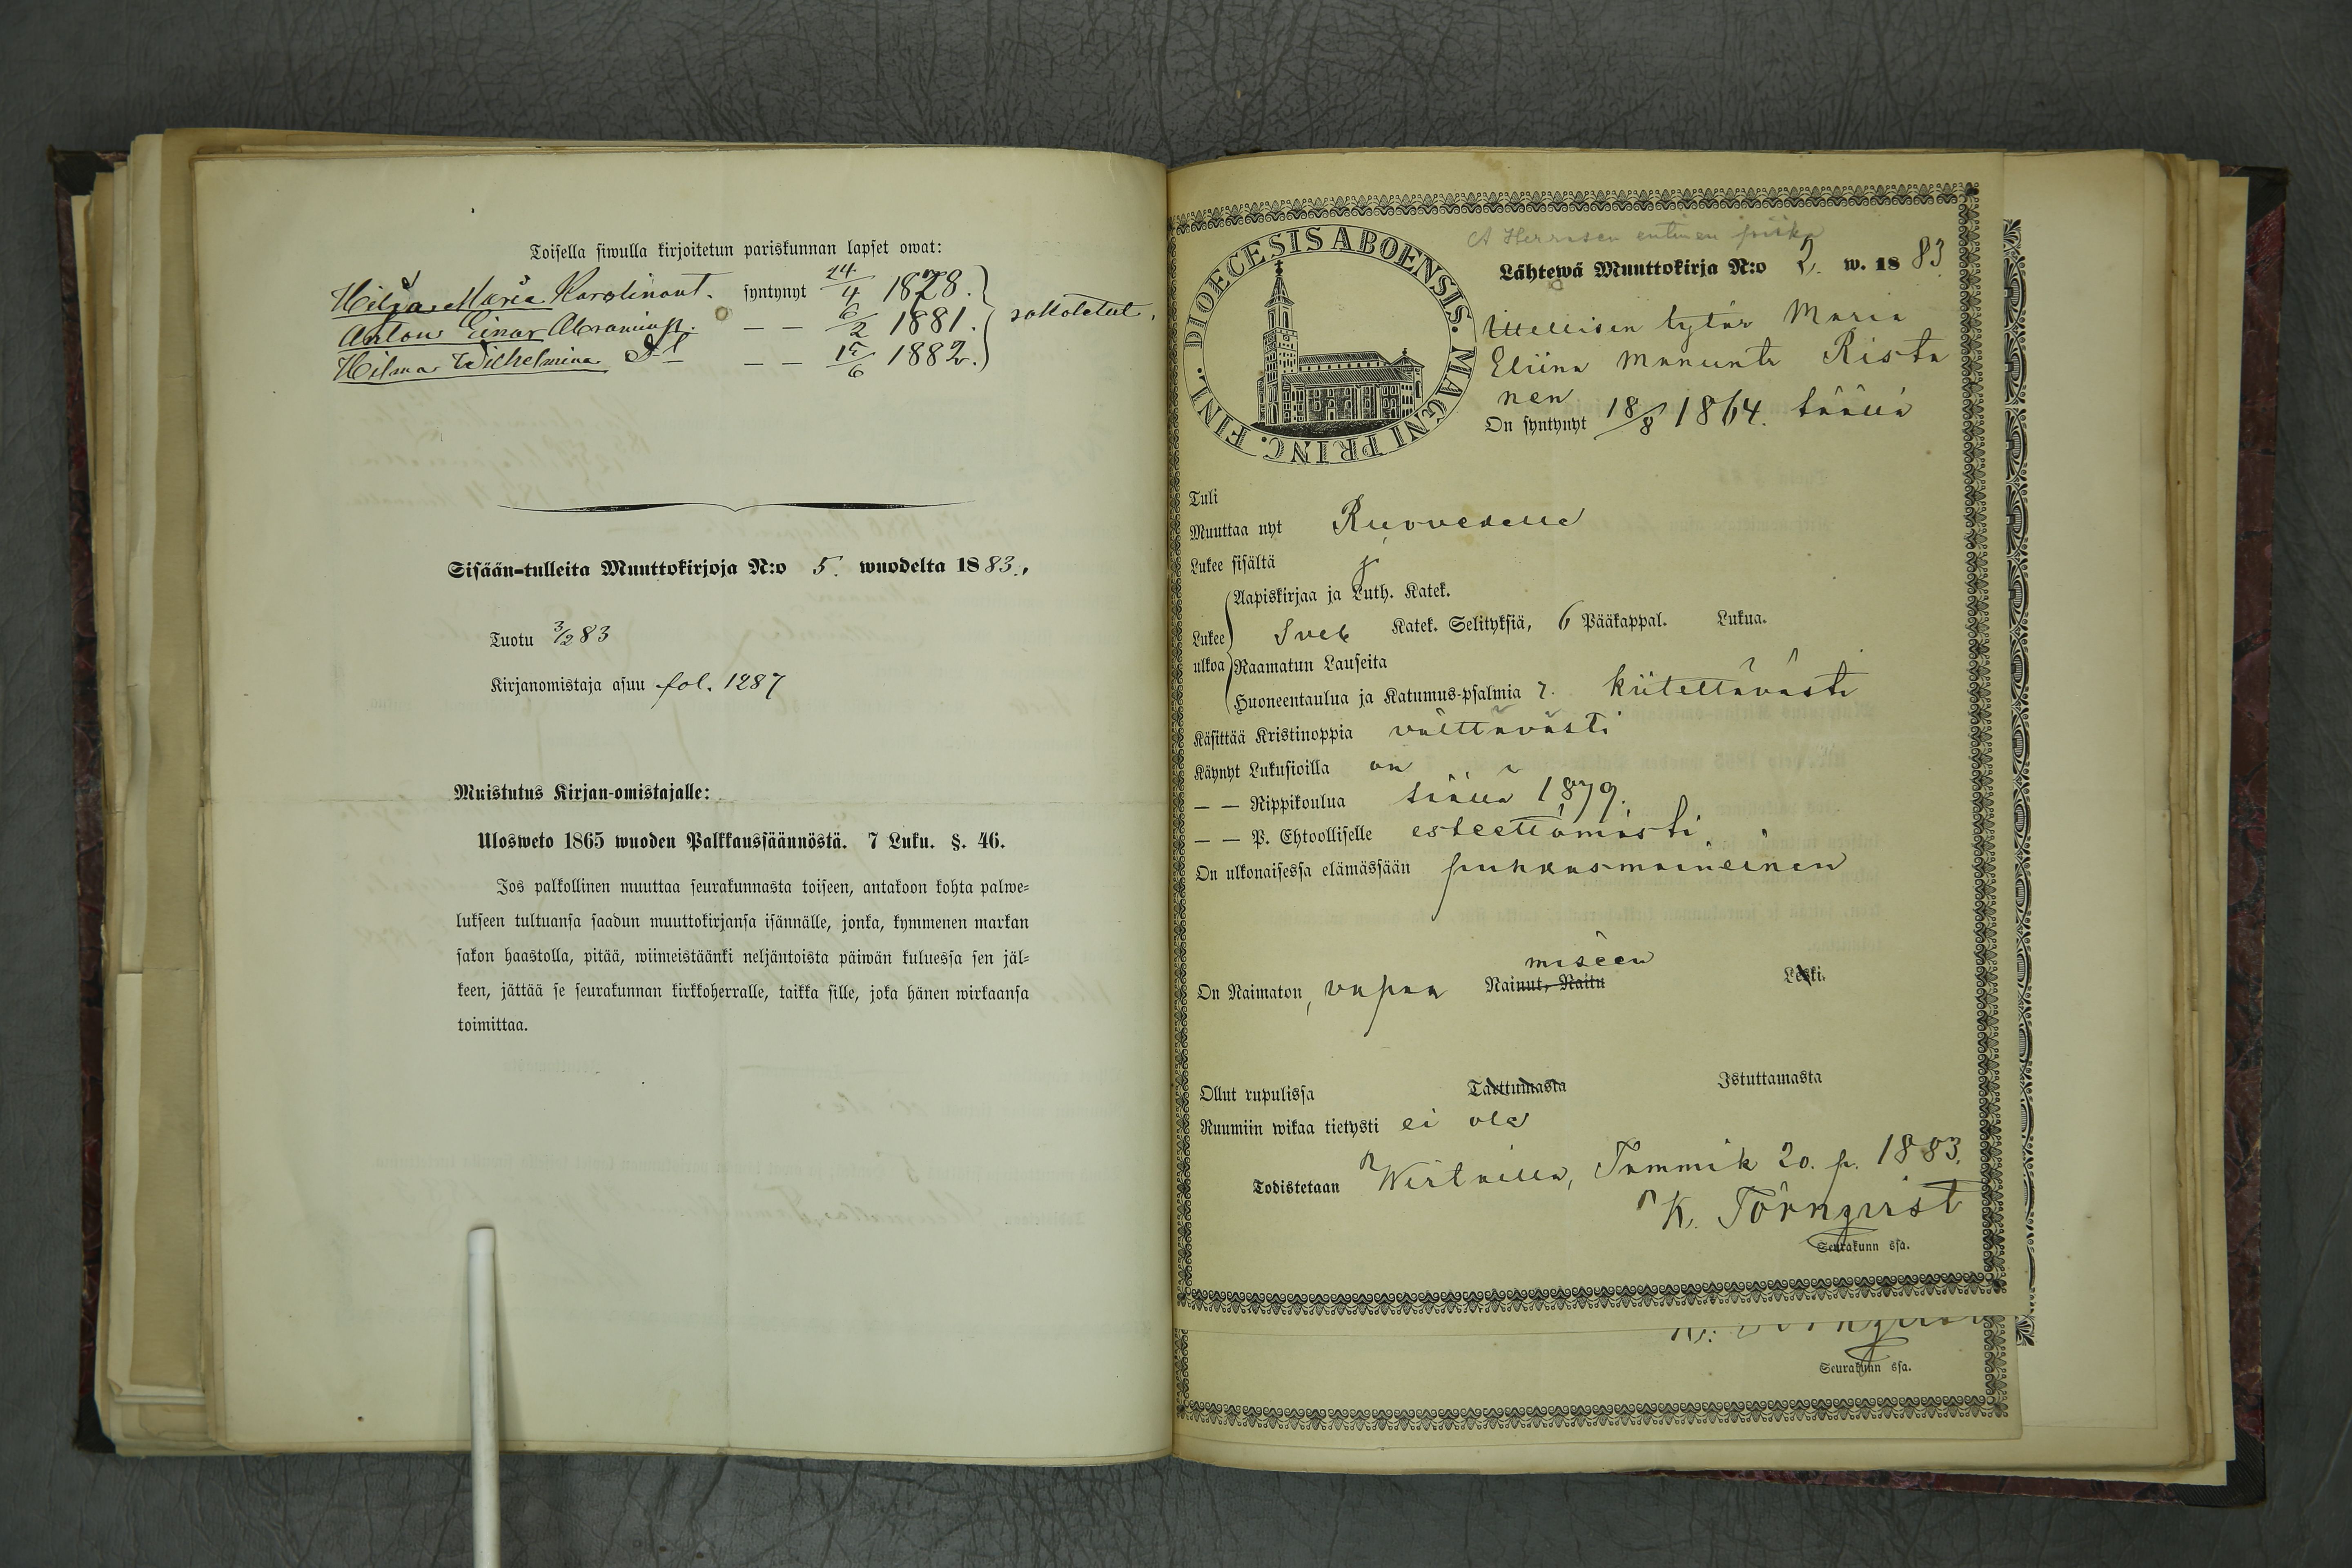 Toisella siwulla kirjoitetun pariskunnan lapset owat:
Hilja Maria Karolina t. syntynyt 24/4 1878.
Anton Einar Abrami p. — — 6/2 1881.
Hilma Wilhelmina — — 15/6 1882.
rokotetut.
Sisään-tulleita Muuttokirjoja N:o 5. wuodelta 1883.,
Tuotu 3/2 83
Kirjanomistaja asuu fol. 1287
Muistutus Kirjan-omistajalle:
Ulosweto 1865 wuoden Palkkaussäännöstä. 7 Luku. §. 46.
Jos palkollinen muuttaa seurakunnasta toiseen, antakoon kohta palwe=
lukseen tultuansa saadun muuttokirjansa isännälle, jonka, kymmenen markan
sakon haastolla, pitää, wiimeistäänki neljäntoista päiwän kuluessa sen jäl=
keen, jättää se seurakunnan kirkkoherralle, taikka sille, joka hänen wirkaansa
toimittaa.
DIOECESIS ABOENSIS. MAGNI PRINC. FINL.
A Herrasen entinen piika
Lähtewä Muuttokirja N:o 2. w. 1883
Ittellisen tytär Maria
Eliina Mananta Rista
nen
On syntynyt 18/8 1864. täällä
Tuli
Muuttaa nyt Ruovedelle
Lukee sisältä
Aapiskirjaa ja Luth. Katek.
Lukee ulkoa
Sveb Katek. Selityksiä, 6 Pääkappal. Lukua.
Raamatun Lauseita
Huoneentaulua ja Katumus-psalmia 7. kiitettävästi
Käsittää Kristinoppia välttävästi
Käynyt Lukusioilla on
— — Rippikoulua täällä 1879.
— — P. Ehtoolliselle esteettömästi
On ulkonaisessa elämässään puhdasmaineinen
miseen
On Naimaton, vapaa Nainut, Naitu Leski.
Ollut rupulissa Tarttumasta Istuttamasta
Ruumiin wikaa tietysti ei ole
Todistetaan Wirtailla, Tammik 20. p. 1883.
K. Törnqvist
Seurakunn ssa.
Seurakunn ssa.